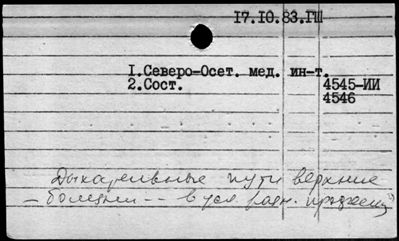 17.10.83.ГШ
1.Северо-Осет. мед. ин-т.
2.Сост. 4545-ИИ
4546
Дыхательные пути верхние
- болезни -- в усл.